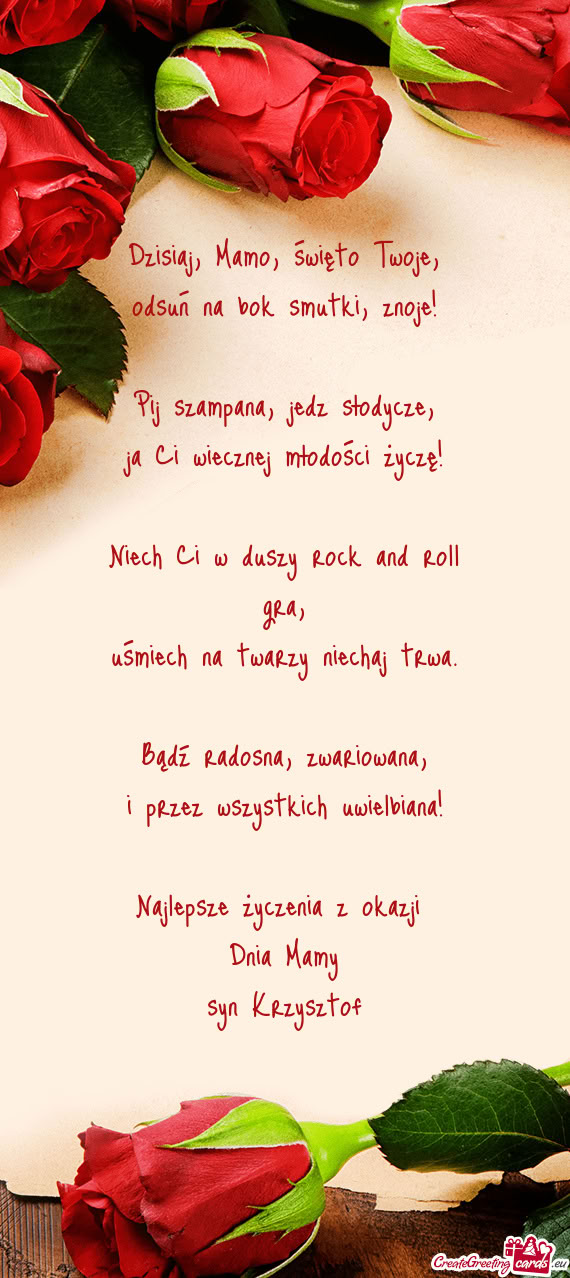 Dzisiaj, Mamo, święto Twoje,
odsuń na bok smutki, znoje!
Pij szampana, jedz słodycze,
ja Ci wiecznej młodości życzę!
Niech Ci w duszy rock and roll
gra,
uśmiech na twarzy niechaj trwa.
Bądź radosna, zwariowana,
i przez wszystkich uwielbiana!
Najlepsze życzenia z okazji
Dnia Mamy
syn Krzysztof
CreateGreetingcards.eu